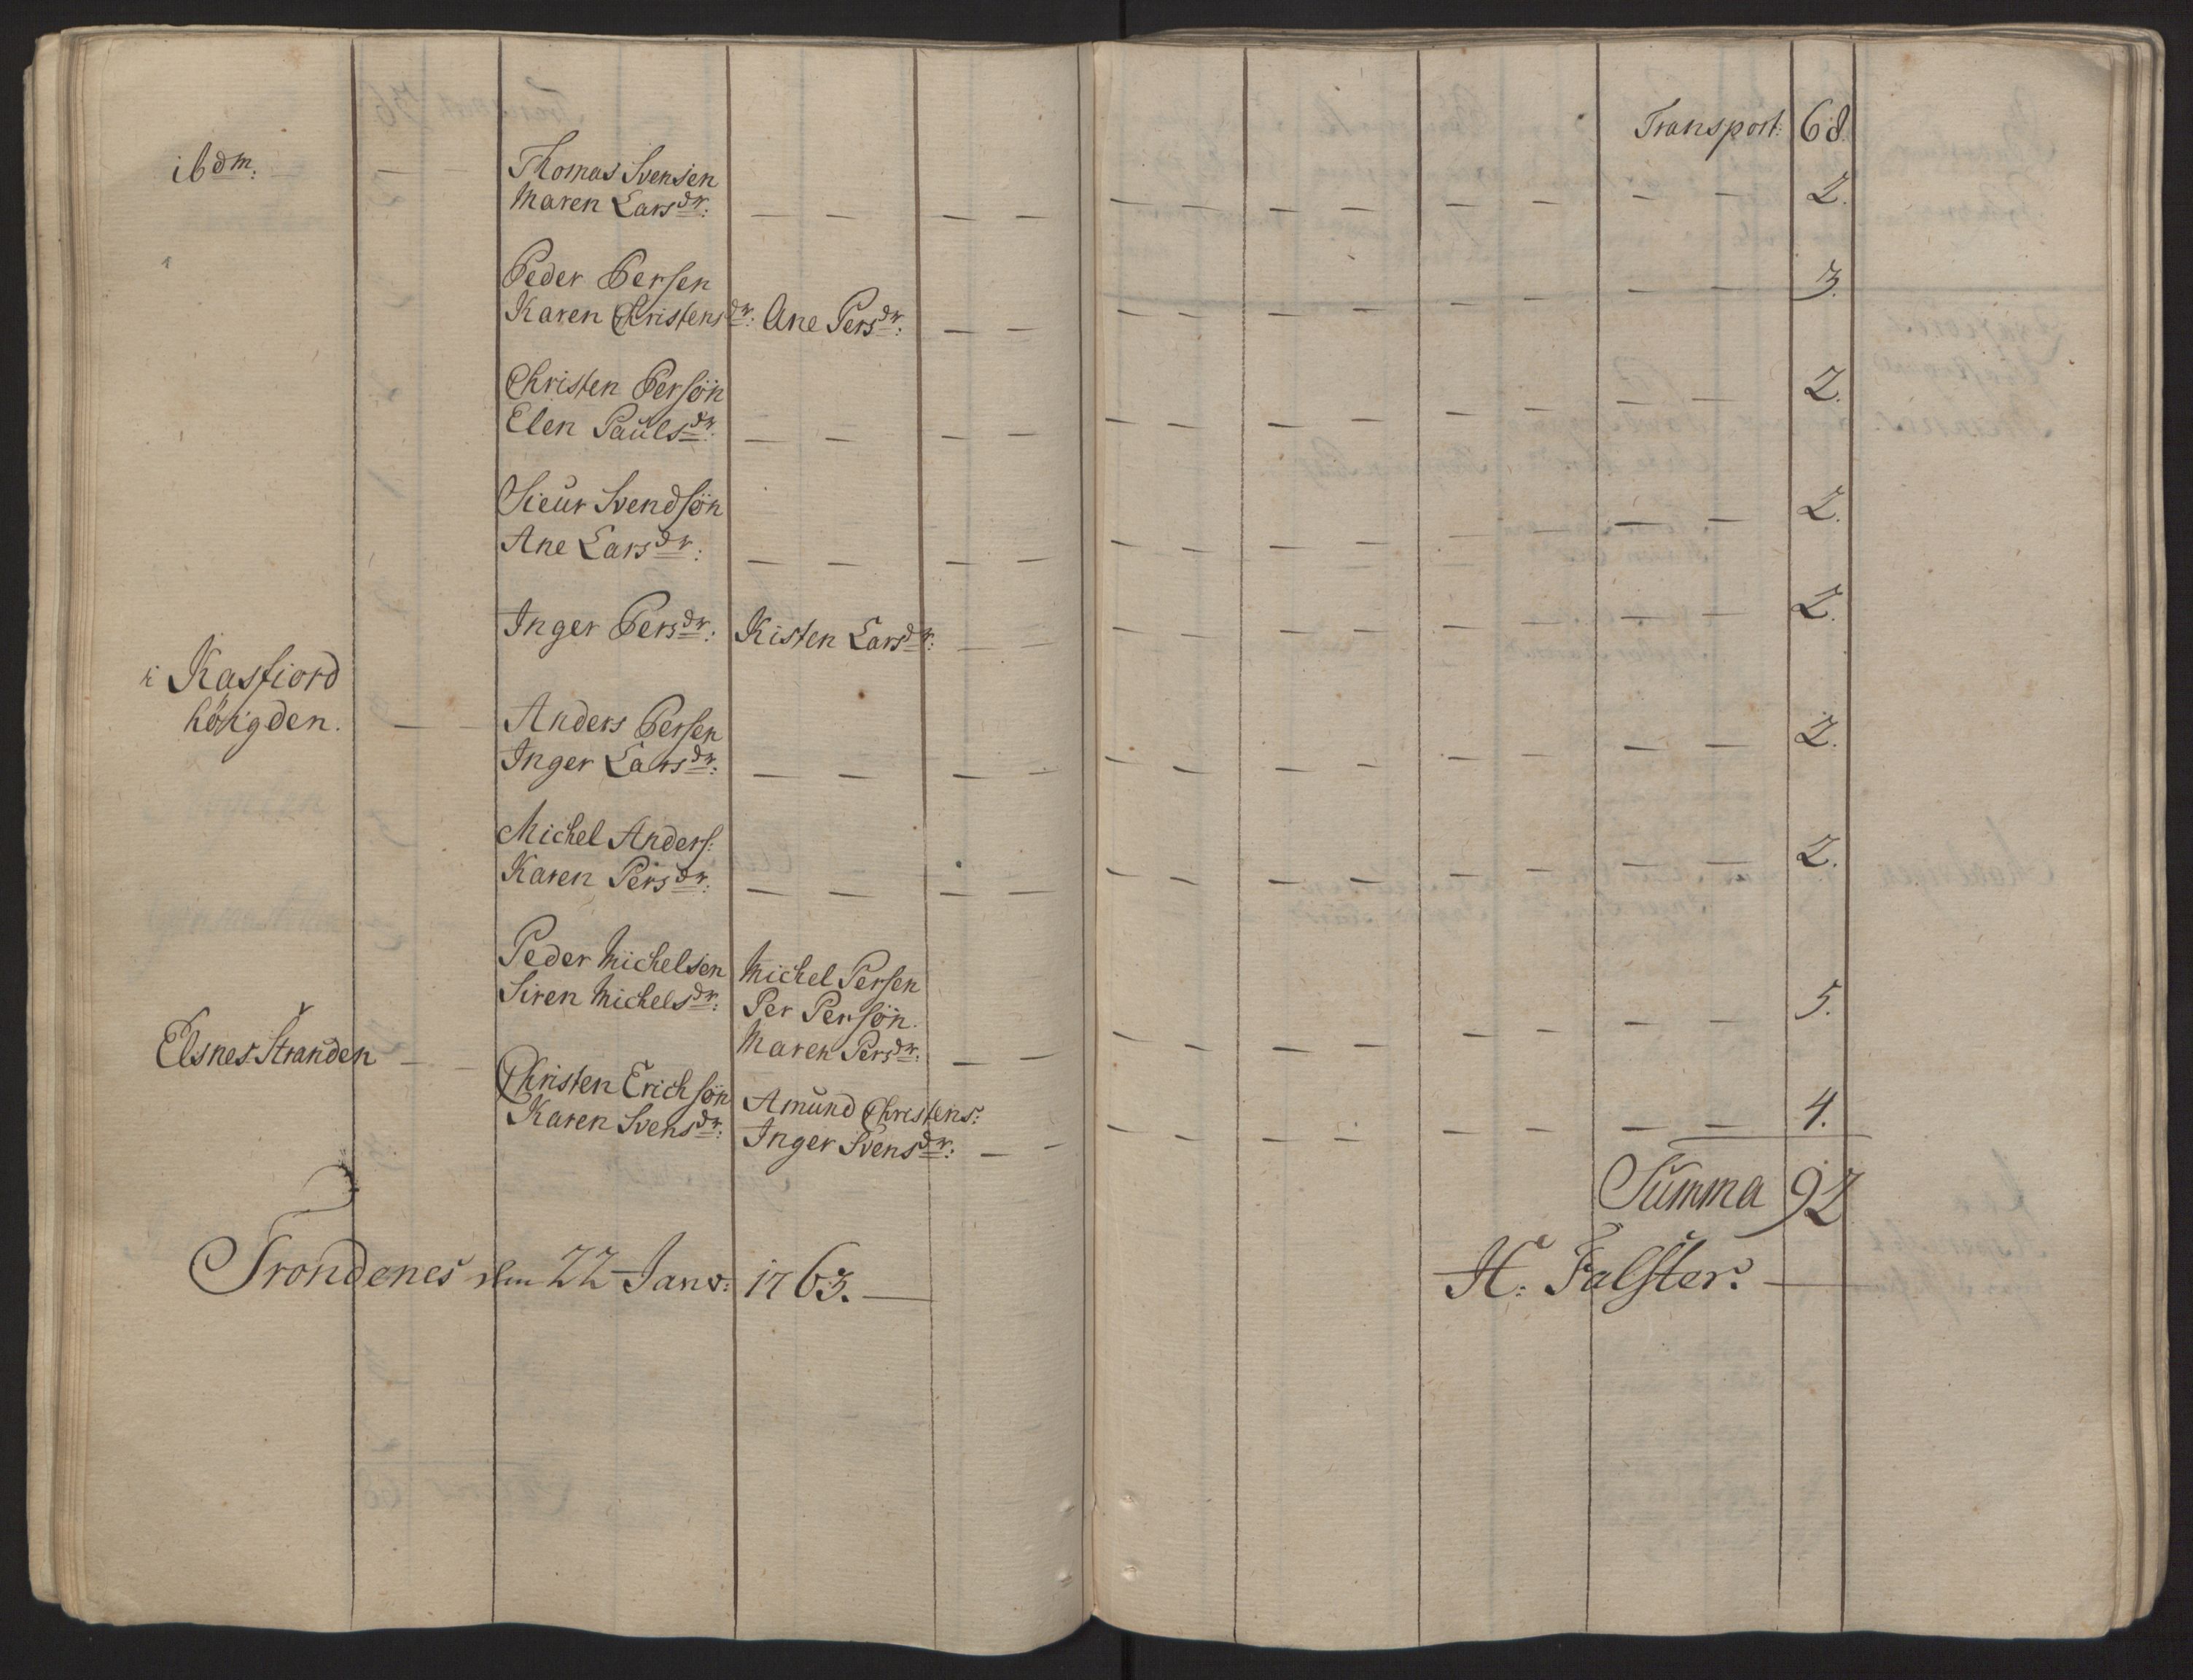 Transport: 68.
ibdm: — — Thomas Svensen
Maren Larsdr: — — — — — — — — — — — — 2.
Peder Persen
Karen Christensdr: Ane Persdr: — — — — — — — — — — 3.
Christen Persön
Elen Paulsdr: — — — — — — — — — — — — 2.
Sieur Svendsön
Ane Larsdr: — — — — — — — — — — — — 2.
Inger Persdr: Kisten Larsdr: — — — — — — — — — — 2.
i Kasfiord
höÿgden. — — Anders Persen
Inger Larsdr: — — — — — — — — — — — — 2.
Michel Anders:
Karen Persdr: — — — — — — — — — — — — 2.
Peder Michelsen Michel Persen
Siren Michelsdr: Per Persön.
Maren Persdr: — — — — — — — — — — 5.
Elsnes Stranden — —
Christen Erichsön Amund Christens:
Karen Svensdr: Inger Svensdr: — — — — — — — — — — 4.
Summa 92
Trondenes den 22 Janv: 1763. —
H: Falster. —